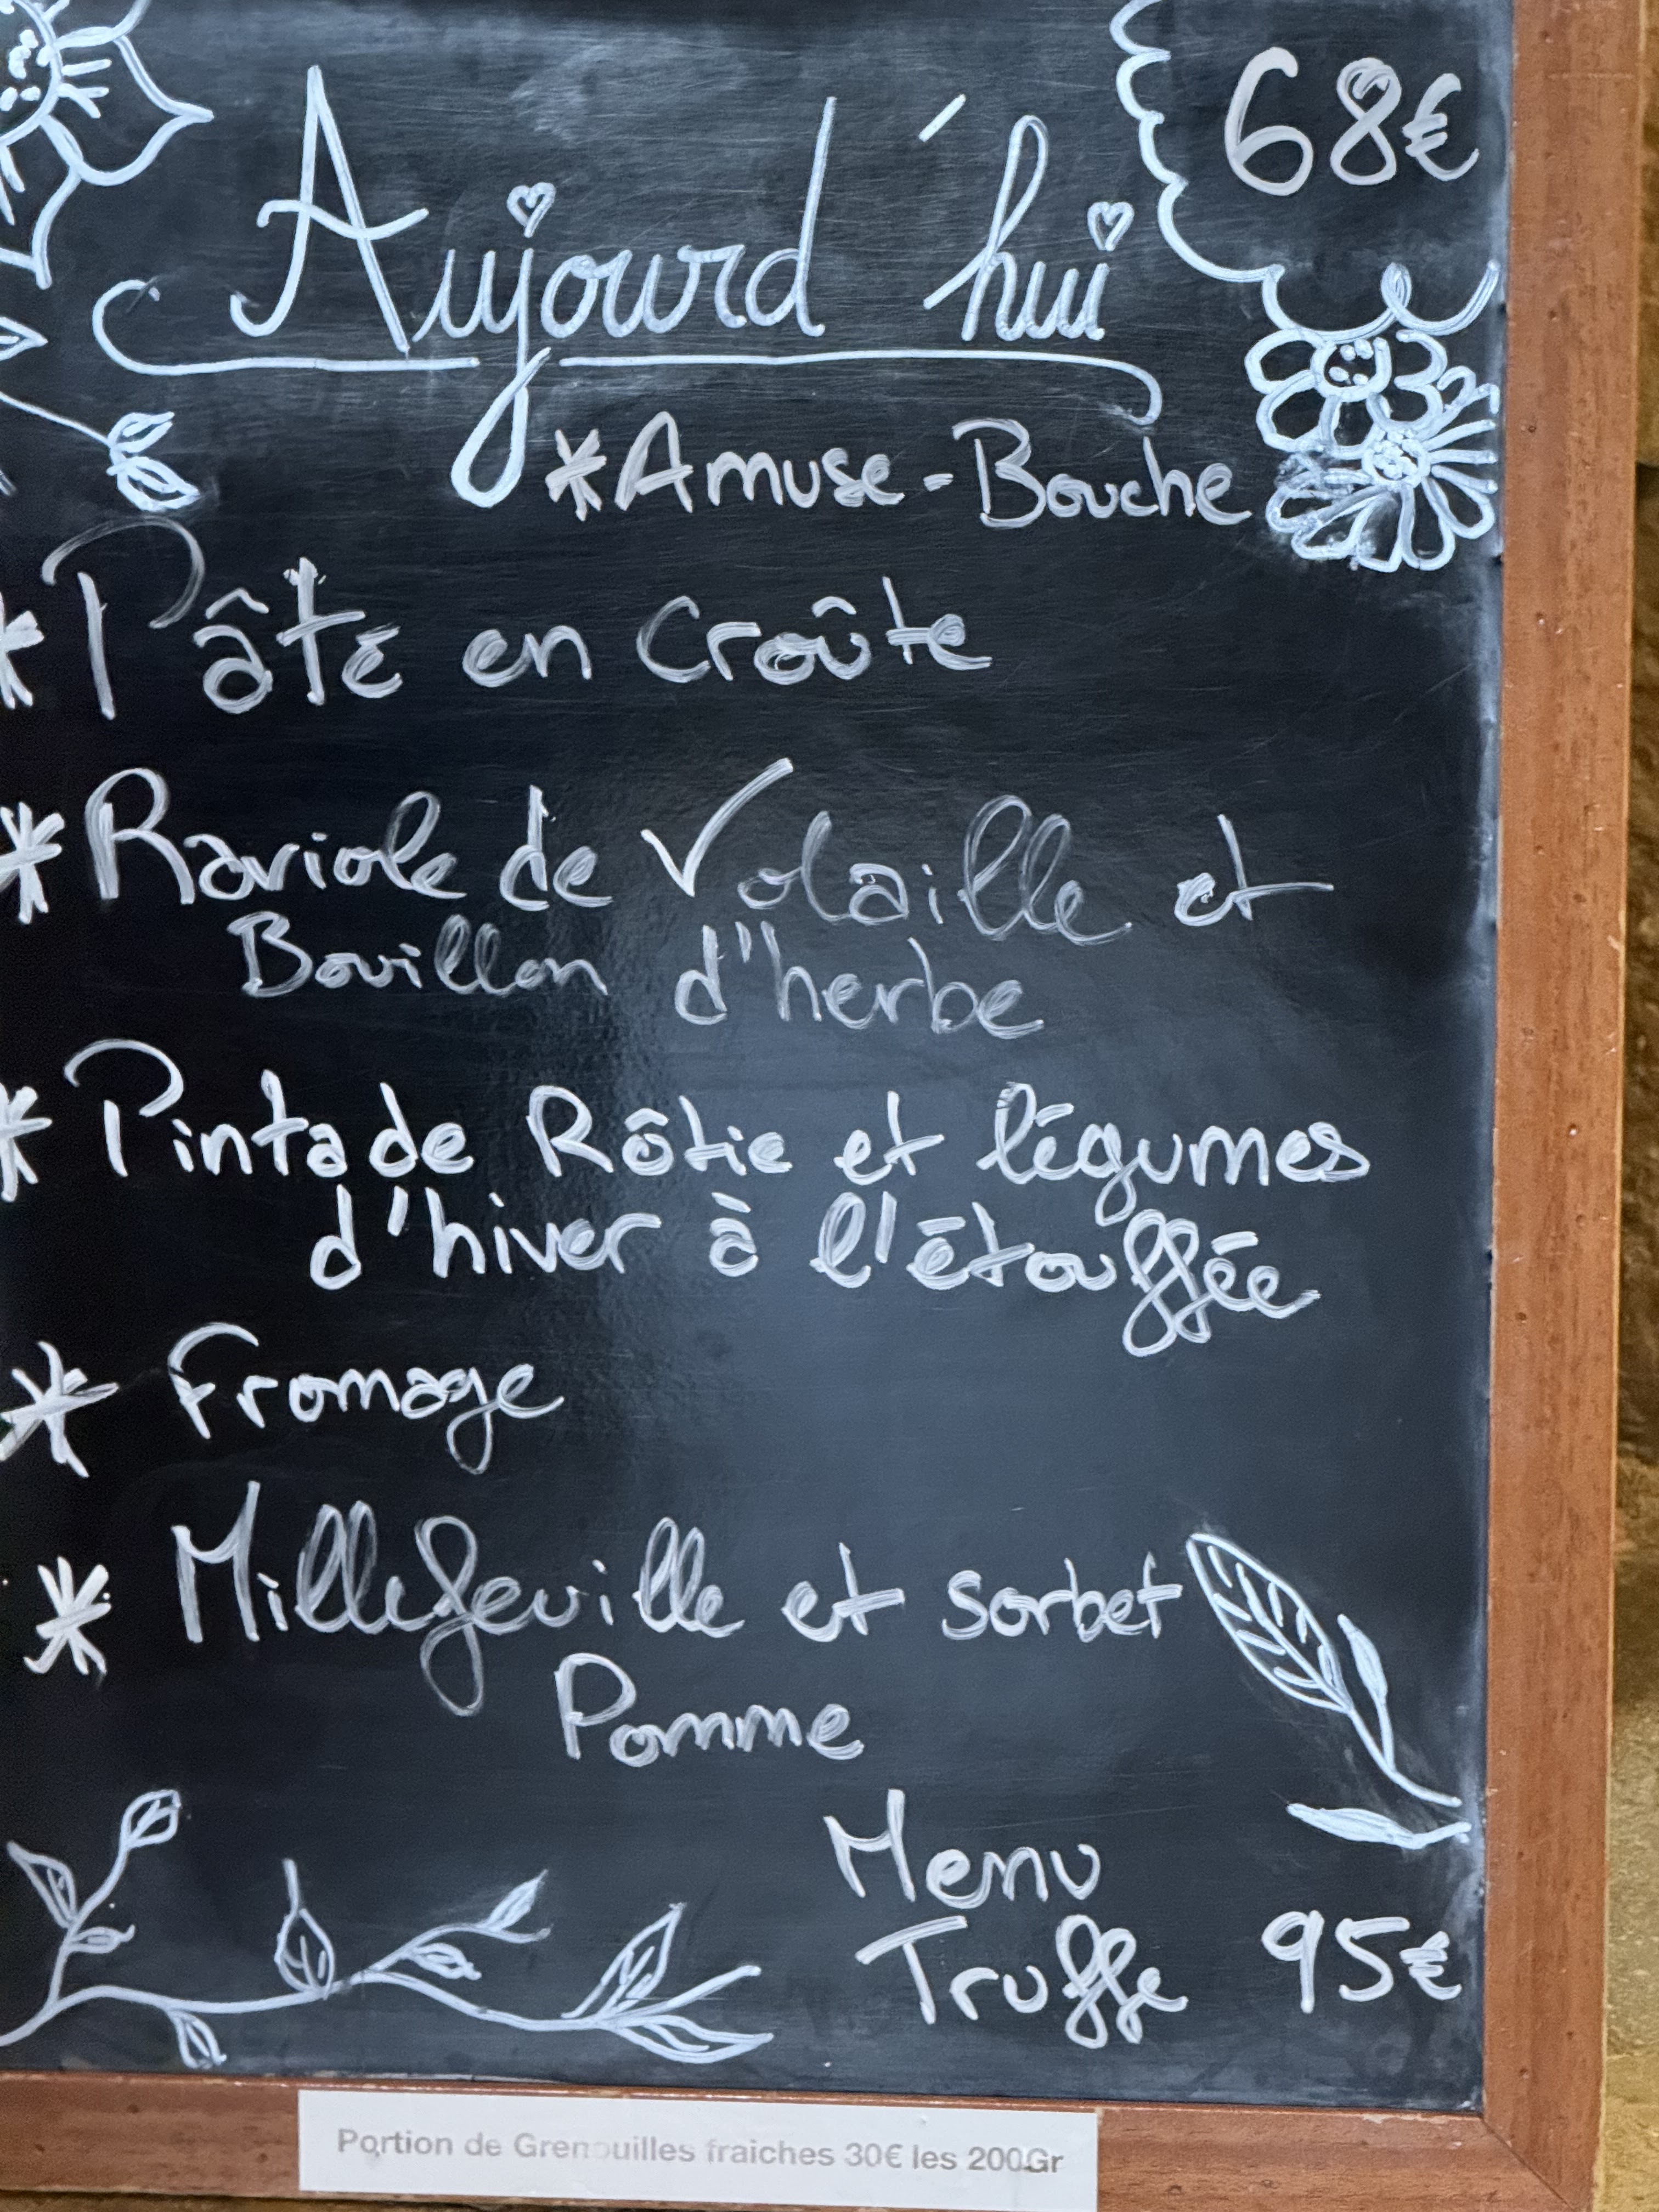 68€
Aujourd'hui
*Amuse-Bouche
*Pâté en Croûte
*Raviole de Volaille et
Bouillon d'herbe
*Pintade Rôtie et légumes
d'hiver à l'étouffée
* Fromage
* Millefeuille et sorbet
Pomme
Menu
Truffe 95€
Portion de Grenouilles fraiches 30€ les 200Gr